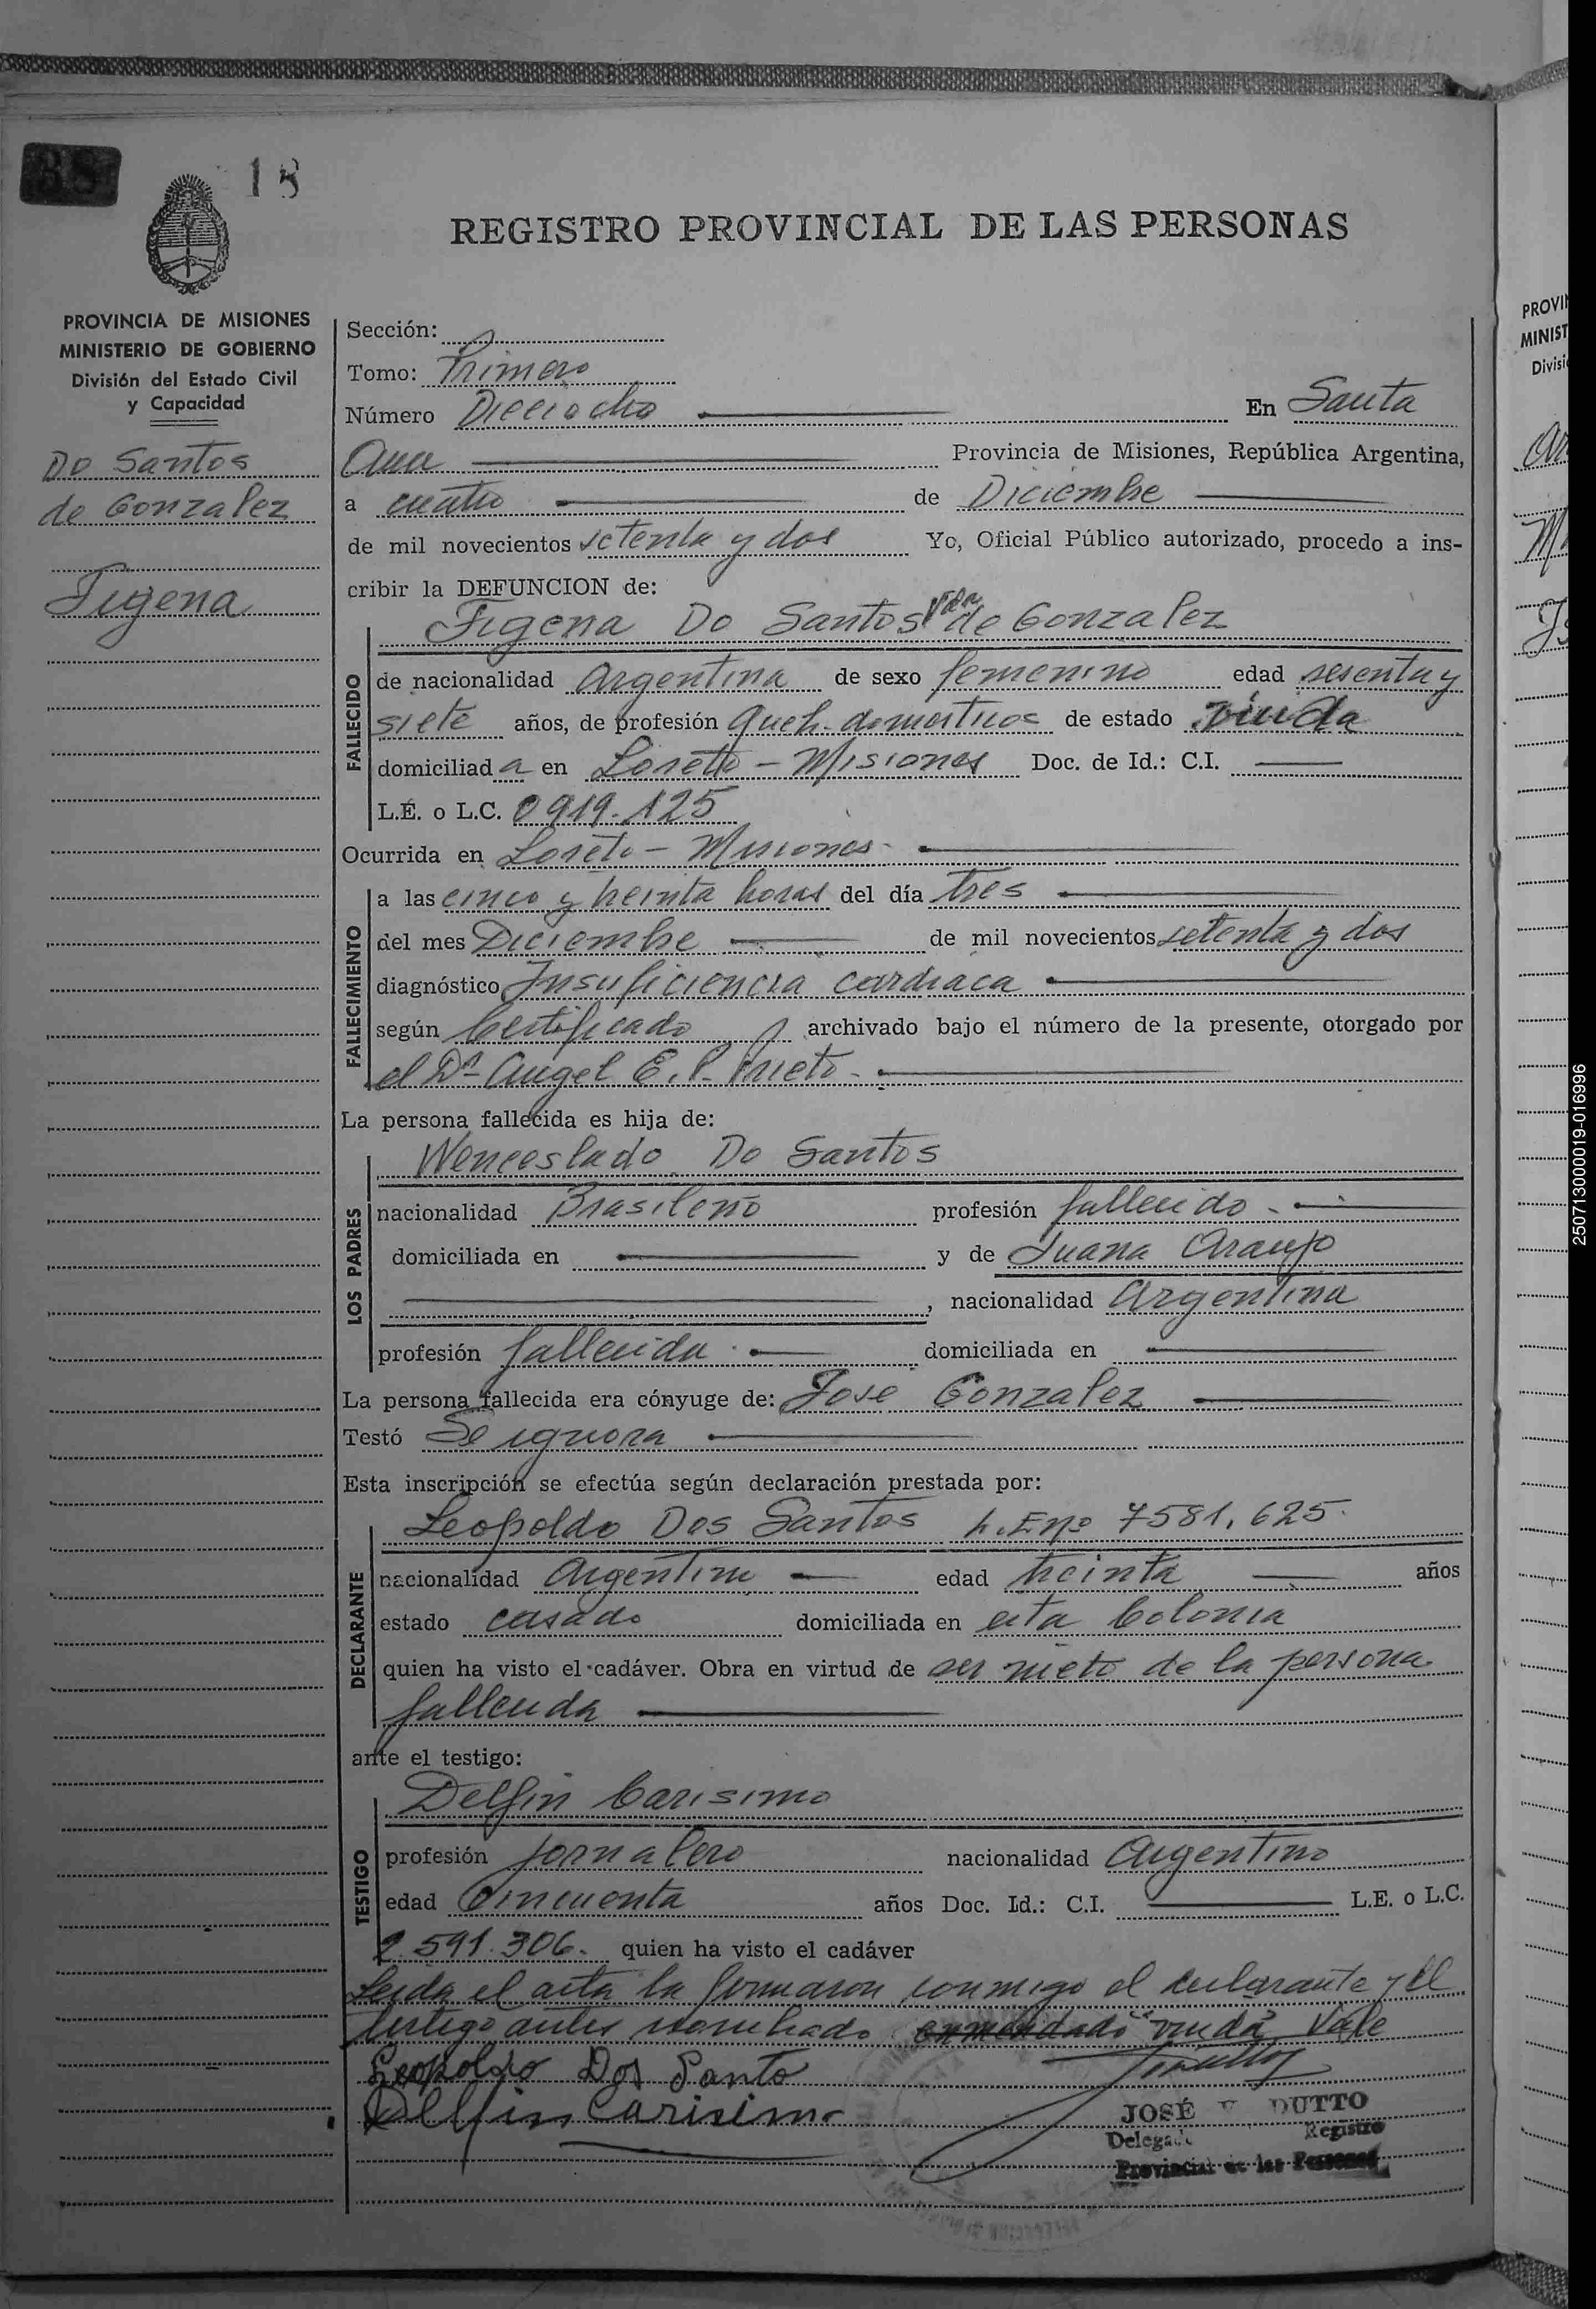 18
REGISTRO PROVINCIAL DE LAS PERSONAS
PROVINCIA DE MISIONES
MINISTERIO DE GOBIERNO
División del Estado Civil
y Capacidad
Do Santos
de Gonzalez
Figena
Sección:
Tomo: Primero
Número Dieciocho En Santa
Ana Provincia de Misiones, República Argentina,
a cuatro de Diciembre
de mil novecientos setenta y dos Yo, Oficial Público autorizado, procedo a ins-
cribir la DEFUNCION de:
Figena Do Santos Vda de Gonzalez
FALLECIDO
de nacionalidad Argentina de sexo femenino edad sesenta y
siete años, de profesión Queh. domesticos de estado viuda
domiciliada en Loreto - Misiones Doc. de Id.: C.I.
L.E. o L.C. 0919.125
Ocurrida en Loreto - Misiones
FALLECIMIENTO
a las cinco y treinta horas del día tres
del mes Diciembre de mil novecientos setenta y dos
diagnóstico Insuficiencia cardiaca
según Certificado archivado bajo el número de la presente, otorgado por
el Dr Angel E. P. Prieto
La persona fallecida es hija de:
LOS PADRES
Wenceslado Do Santos
nacionalidad Brasileno profesión fallecido
domiciliada en y de Juana Araujo
, nacionalidad Argentina
profesión fallecida domiciliada en
La persona fallecida era cónyuge de: Jose Gonzalez
Testó Se ignora
Esta inscripción se efectúa según declaración prestada por:
DECLARANTE
Leopoldo Dos Santos L.E nº 7581.625.
nacionalidad Argentino edad treinta años
estado casado domiciliada en esta Colonia
quien ha visto el cadáver. Obra en virtud de ser nieto de la persona
fallecida
ante el testigo:
TESTIGO
Delfin Carisimo
profesión jornalero nacionalidad Argentino
edad Cincuenta años Doc. Id.: C.I. L.E. o L.C.
2.591.306. quien ha visto el cadáver
Leida el acta la firmaron conmigo el declarante y el
testigo antes nombrado enmendado "viuda" Vale
Leopoldo Dos Santo
Delfin Carisimo
JOSÉ DUTTO
Delegado Registro
Provincial de las Personas
PROVIN
MINIST
Divisi
2507130000019-016996